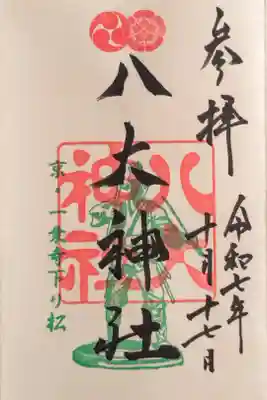 参拝
令和七年
十月十七日
八大神社
八大
神社
京・一乗寺下り松